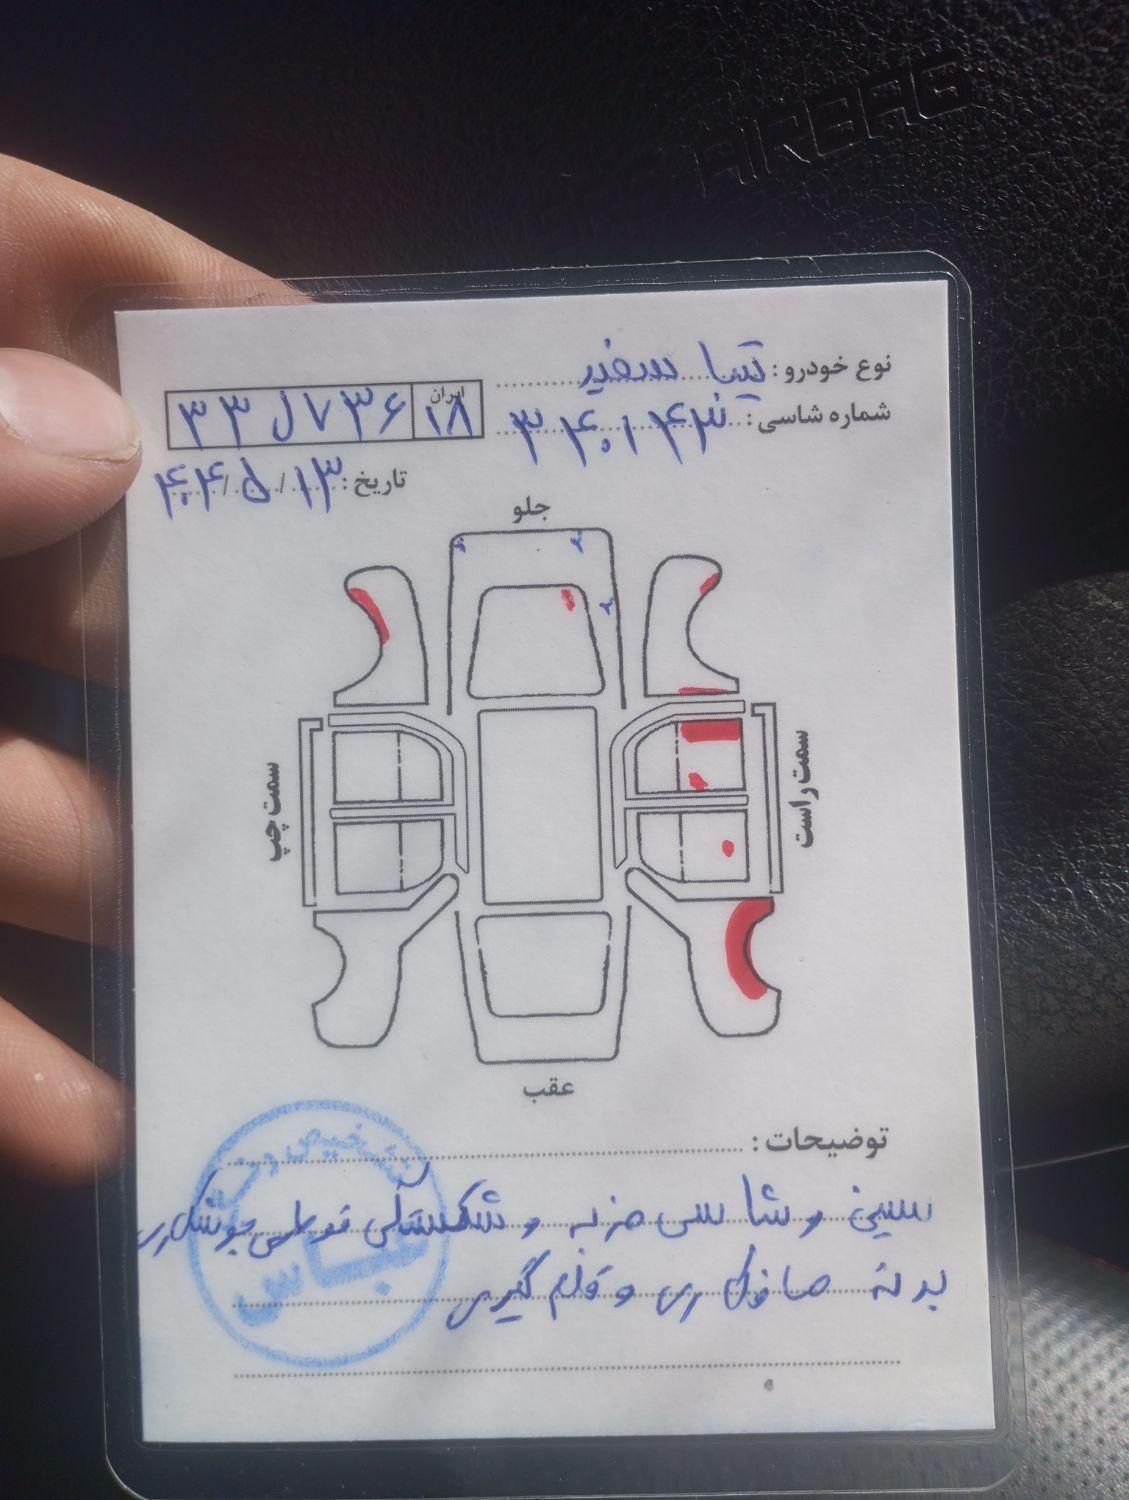 AIRBAG
نوع خودرو : تیبا سفید
شماره شاسی : ۳۴۰۱۴۳
ایران ۱۸
۳۳ ل ۷۳۶
تاریخ : ۱۳ / ۵ / ۴۰۴
جلو
سمت چپ
سمت راست
عقب
توضیحات :
سینی و شاسی ضربه و شکستگی قوطی جوشکاری
بدنه صافکاری و قلم گیری